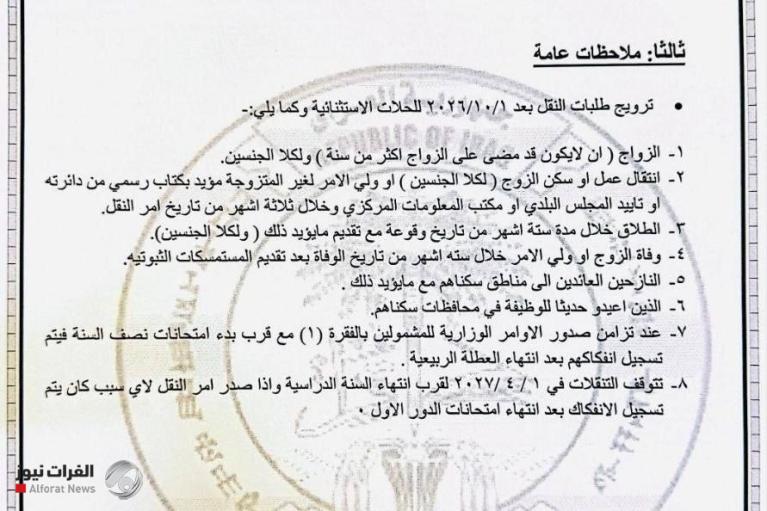 ثالثا: ملاحظات عامة
• ترويج طلبات النقل بعد ٢٠٢٦/١٠/١ للحلات الاستثنائية وكما يلي:-
١- الزواج ( ان لايكون قد مضى على الزواج اكثر من سنة ) ولكلا الجنسين.
٢- انتقال عمل او سكن الزوج ( لكلا الجنسين ) او ولي الامر لغير المتزوجة مؤيد بكتاب رسمي من دائرته
او تاييد المجلس البلدي او مكتب المعلومات المركزي وخلال ثلاثة اشهر من تاريخ امر النقل.
٣- الطلاق خلال مدة ستة اشهر من تاريخ وقوعة مع تقديم مايؤيد ذلك ( ولكلا الجنسين).
٤- وفاة الزوج او ولي الامر خلال سته اشهر من تاريخ الوفاة بعد تقديم المستمسكات الثبوتيه.
٥- النازحين العائدين الى مناطق سكناهم مع مايؤيد ذلك .
٦- الذين اعيدو حديثا للوظيفة في محافظات سكناهم.
٧- عند تزامن صدور الاوامر الوزارية للمشمولين بالفقرة (١) مع قرب بدء امتحانات نصف السنة فيتم
تسجيل انفكاكهم بعد انتهاء العطلة الربيعية .
٨- تتوقف التنقلات في ١ / ٤ /٢٠٢٧ لقرب انتهاء السنة الدراسية واذا صدر امر النقل لاي سبب كان يتم
تسجيل الانفكاك بعد انتهاء امتحانات الدور الاول ٠
REPUBLIC OF IRAQ
الفرات نيوز
Alforat News